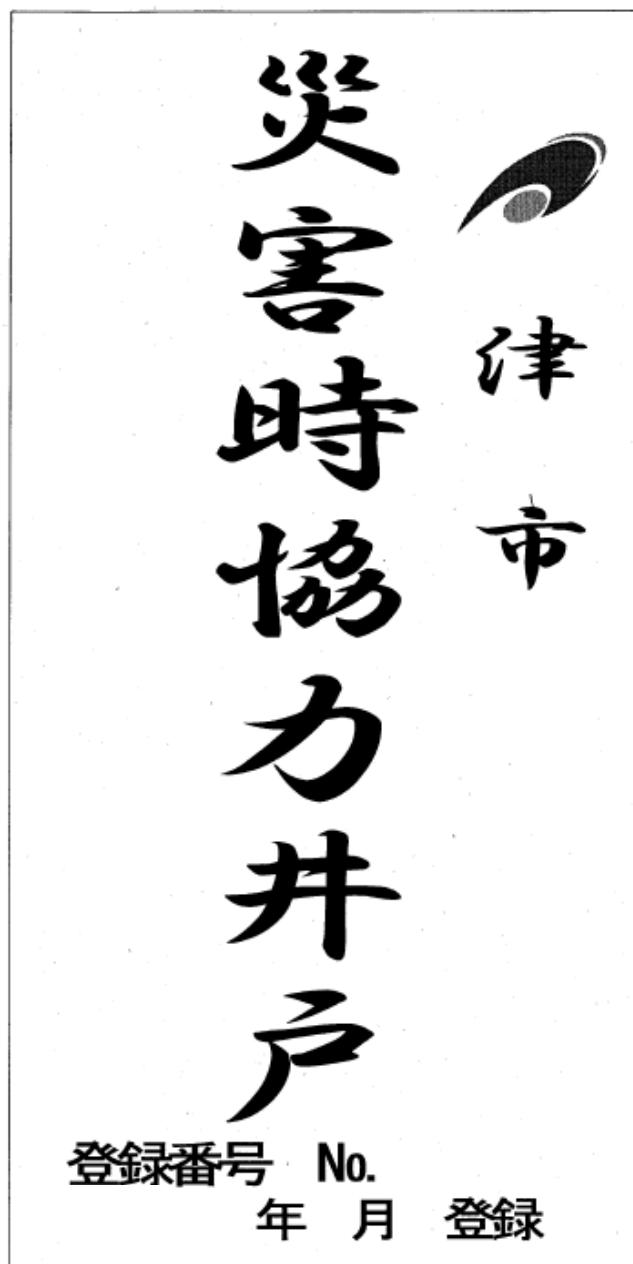 津市
災害時協力井戸
登録番号 No.
年 月 登録